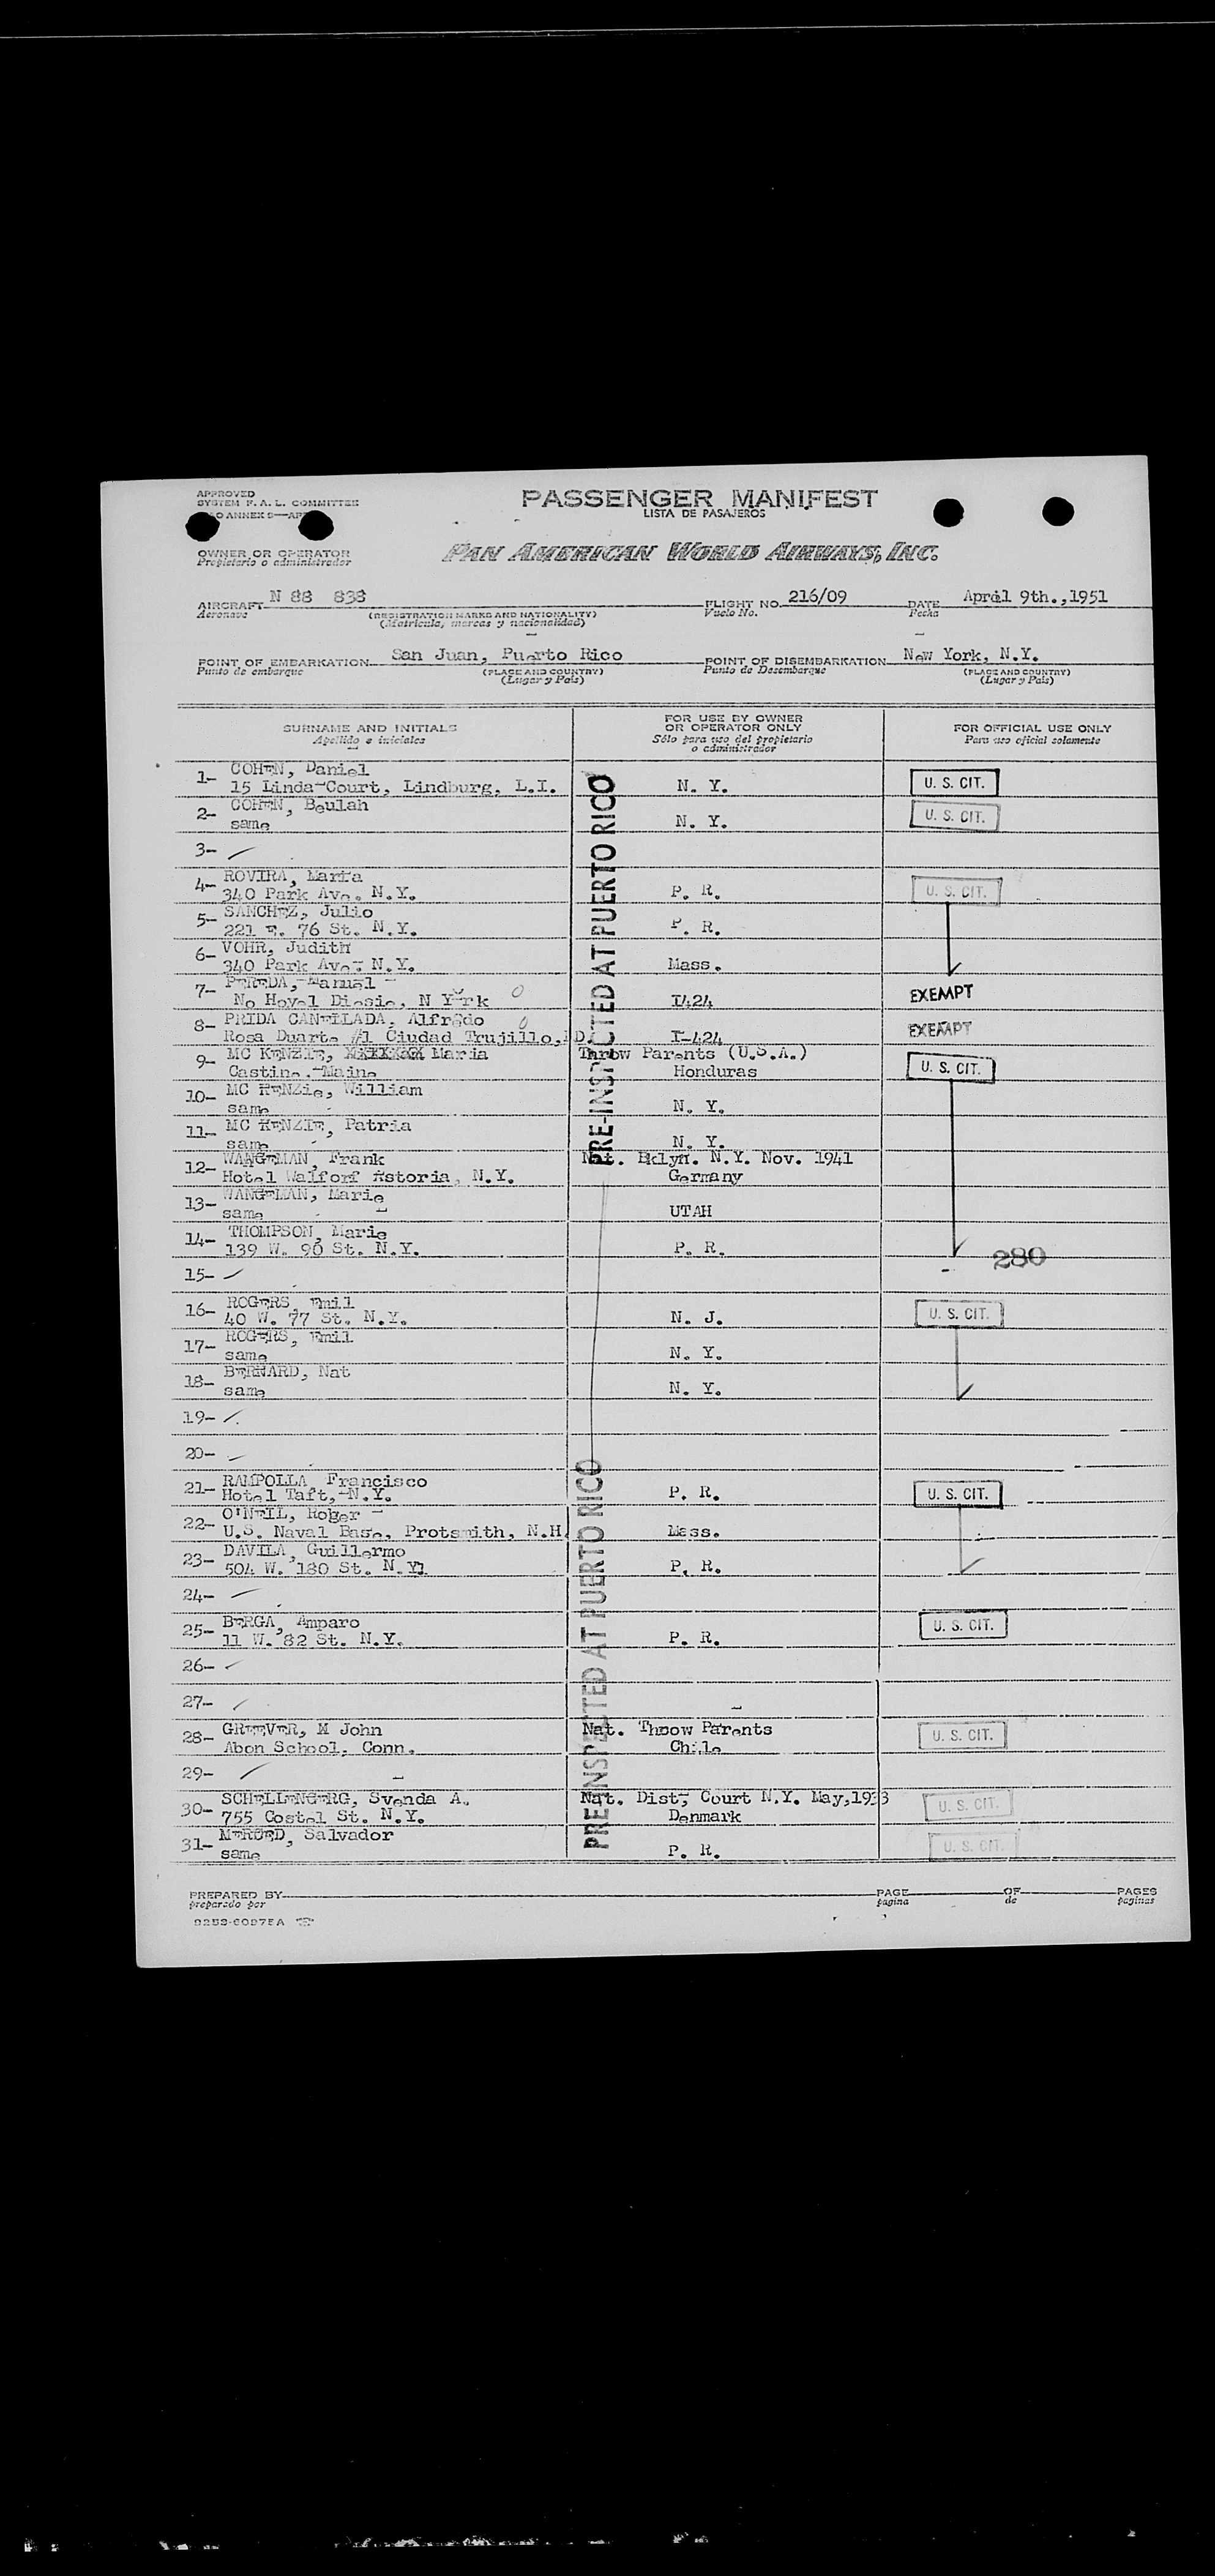 APPROVED
SYSTEM F. A. L. COMMITTEE
PASSENGER MANIFEST
LISTA DE PASAJEROS
OWNER OR OPERATOR
Propietario o administrador
PAN AMERICAN WORLD AIRWAYS, INC.
AIRCRAFT N 88 838 FLIGHT NO. 216/09 DATE April 9th.,1951
Aeronave (REGISTRATION MARKS AND NATIONALITY) Vuelo No. Fecha
(Matricula, marcas y nacionalidad)
POINT OF EMBARKATION San Juan, Puerto Rico POINT OF DISEMBARKATION New York, N.Y.
Punto de embarque (PLACE AND COUNTRY) Punto de Desembarque (PLACE AND COUNTRY)
(Lugar y País) (Lugar y País)
SURNAME AND INITIALS FOR USE BY OWNER OR OPERATOR ONLY FOR OFFICIAL USE ONLY
Apellido e iniciales Sólo para uso del propietario o administrador Para uso oficial solamente
PRE-INSPECTED AT PUERTO RICO
1- COHEN, Daniel
15 Linda Court, Lindburg, L.I. N. Y. U. S. CIT.
2- COHEN, Beulah
same N. Y. U. S. CIT.
3-
4- ROVIRA, Marta
340 Park Ave. N.Y. P. R. U. S. CIT.
5- SANCHEZ, Julio
221 E. 76 St. N.Y. P. R.
6- VOHR, Judith
340 Park Ave. N.Y. Mass.
7- PEREDA, Manuel
No Hovel Diesie, N York I424 EXEMPT
8- PRIDA CANELLADA, Alfredo
Rosa Duarte #1 Ciudad Trujillo, D. I-424 EXEMPT
9- MC KENZIE, Maria Throw Parents (U.S.A.)
Castine, Maine Honduras U. S. CIT.
10- MC KENZie, William
same N. Y.
11- MC KENZIE, Patria
same N. Y.
12- WANGEMAN, Frank Nat. Bklyn. N.Y. Nov. 1941
Hotel Walforf Astoria, N.Y. Germany
13- WANGEMAN, Marie
same UTAH
14- THOMPSON, Marie
139 W. 90 St. N.Y. P. R. 280
15-
16- ROGERS, Emil
40 W. 77 St. N.Y. N. J. U. S. CIT.
17- ROGERS, Emil
same N. Y.
18- BERNARD, Nat
same N. Y.
19-
20-
21- RAMPOLLA, Francisco
Hotel Taft, N.Y. P. R. U. S. CIT.
22- O'NEIL, Roger
U.S. Naval Base, Protsmith, N.H. Mass.
23- DAVILA, Guillermo
504 W. 180 St. N.Y. P. R.
24-
25- BERGA, Amparo
11 W. 82 St. N.Y. P. R. U. S. CIT.
26-
27-
28- GREEVER, M John Nat. Throow Parents
Abon School, Conn. Chile U. S. CIT.
29-
30- SCHELLENGERG, Svenda A. Nat. Dist; Court N.Y. May,1933
755 Costel St. N.Y. Denmark U. S. CIT.
31- MERCED, Salvador
same P. R. U. S. CIT.
PRE-INSPECTED AT PUERTO RICO
PREPARED BY PAGE OF PAGES
preparado por pagina de paginas